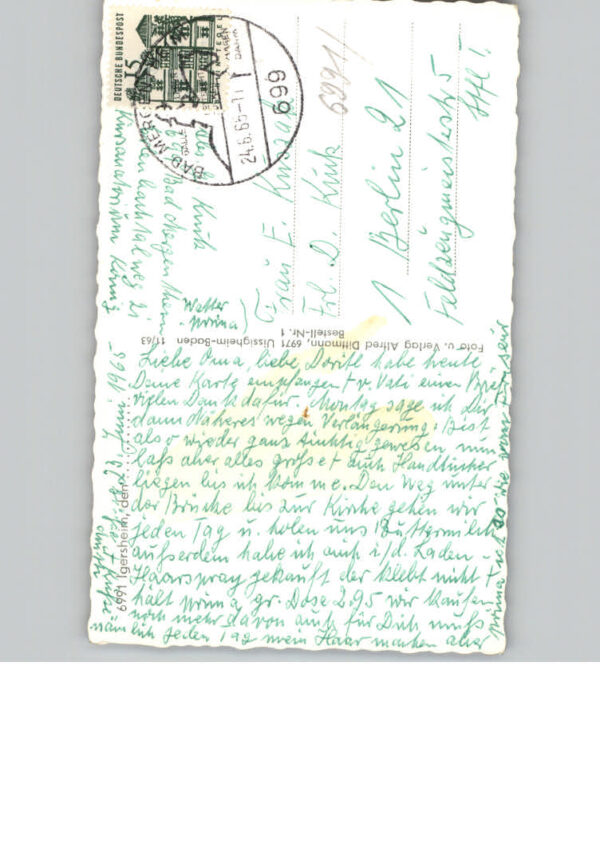 DEUTSCHE BUNDESPOST
15
TEGEL
BAD MERG
24.6.65-11
699
6991
Kuck
Bad Mergentheim
Kursanatorium König
Frau E.
Frl. D. Kuck
1 Berlin 21
Feldzeugmeisterstr. 5
Wetter
prima
Foto u. Verlag Alfred Dittmann, 6971 Uissigheim-Baden 11/63
Bestell-Nr. 1
6991 Igersheim, den
23. Juni 1965
Liebe Oma, liebe Dorit habe heute
Deine Karte empfangen + v. Vati einen
vielen Dank dafür. Montag sage ich Dir
dann Näheres wegen Verlängerung. Bist
also wieder ganz tüchtig gewesen, nun
laß aber alles große + auch Handtücher
liegen bis ich komme. Den Weg unter
der Brücke bis zur Kirche gehen wir
jeden Tag u. holen uns Buttermilch
außerdem habe ich auch i/d. Laden
Haarspray gekauft der klebt nicht +
hält prima, gr. Dose 2.95 wir kaufen
noch mehr davon auch für Dich muß
nämlich jeden Tag mein Haar machen aber
prima